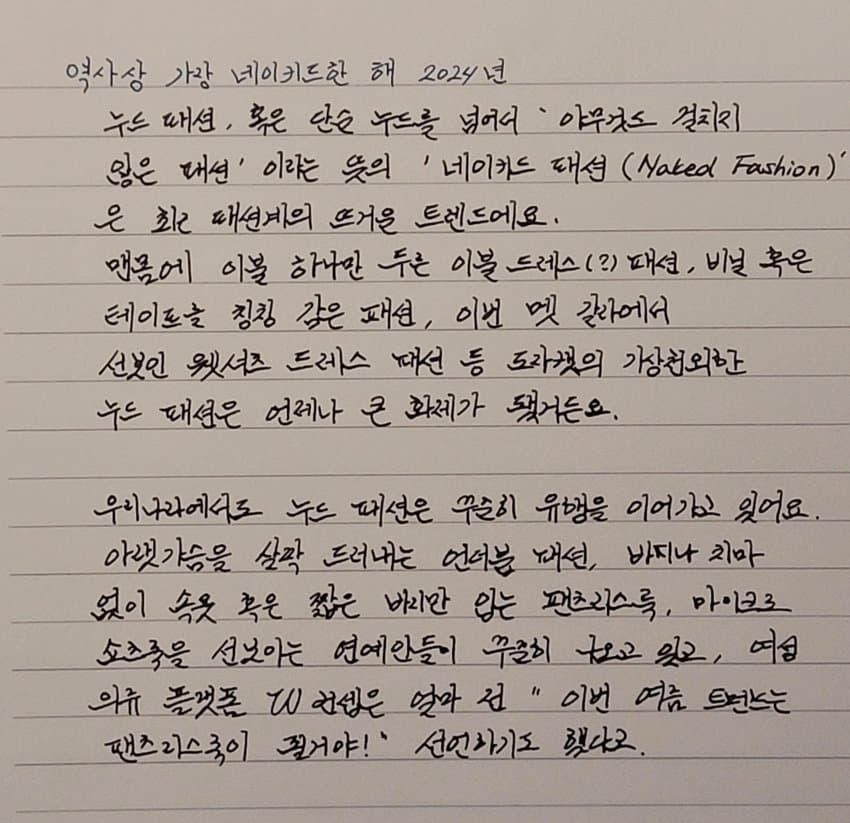 역사상 가장 네이키드한 해 2024년
누드 패션, 혹은 단순 누드를 넘어서 '아무것도 걸치지
않은 패션' 이라는 뜻의 '네이키드 패션 (Naked Fashion)'
은 최근 패션계의 뜨거운 트렌드에요.
맨몸에 이불 하나만 두른 이불 드레스(?) 패션, 비닐 혹은
테이프를 칭칭 감은 패션, 이번 멧 갈라에서
선보인 웻셔츠 드레스 패션 등 도자캣의 기상천외한
누드 패션은 언제나 큰 화제가 됐거든요.
우리나라에서도 누드 패션은 꾸준히 유행을 이어가고 있어요.
아랫가슴을 살짝 드러내는 언더붑 패션, 바지나 치마
없이 속옷 혹은 짧은 바지만 입는 팬츠리스룩, 마이크로
쇼츠룩을 선보이는 연예인들이 꾸준히 나오고 있고, 여성
의류 플랫폼 W 컨셉은 얼마 전 "이번 여름 트렌드는
팬츠리스룩이 될거야!" 선언하기도 했다고.